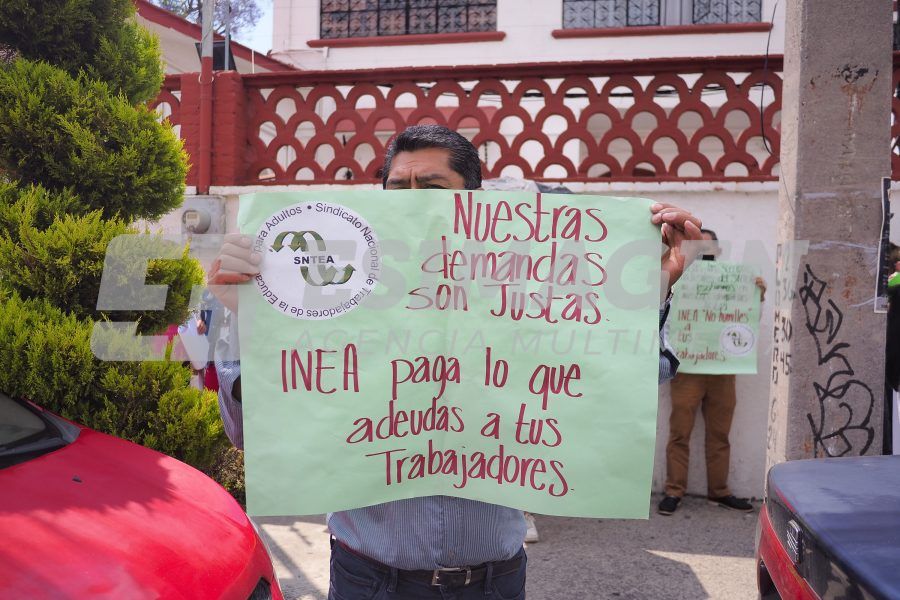 Nuestras
demandas
son Justas.
INEA paga lo que
adeudas a tus
Trabajadores.
Sindicato Nacional de Trabajadores de la Educación para Adultos •
SNTEA
INEA "No humilles"
a tus
trabajadores
ESIMAGEN
AGENCIA MULTIM